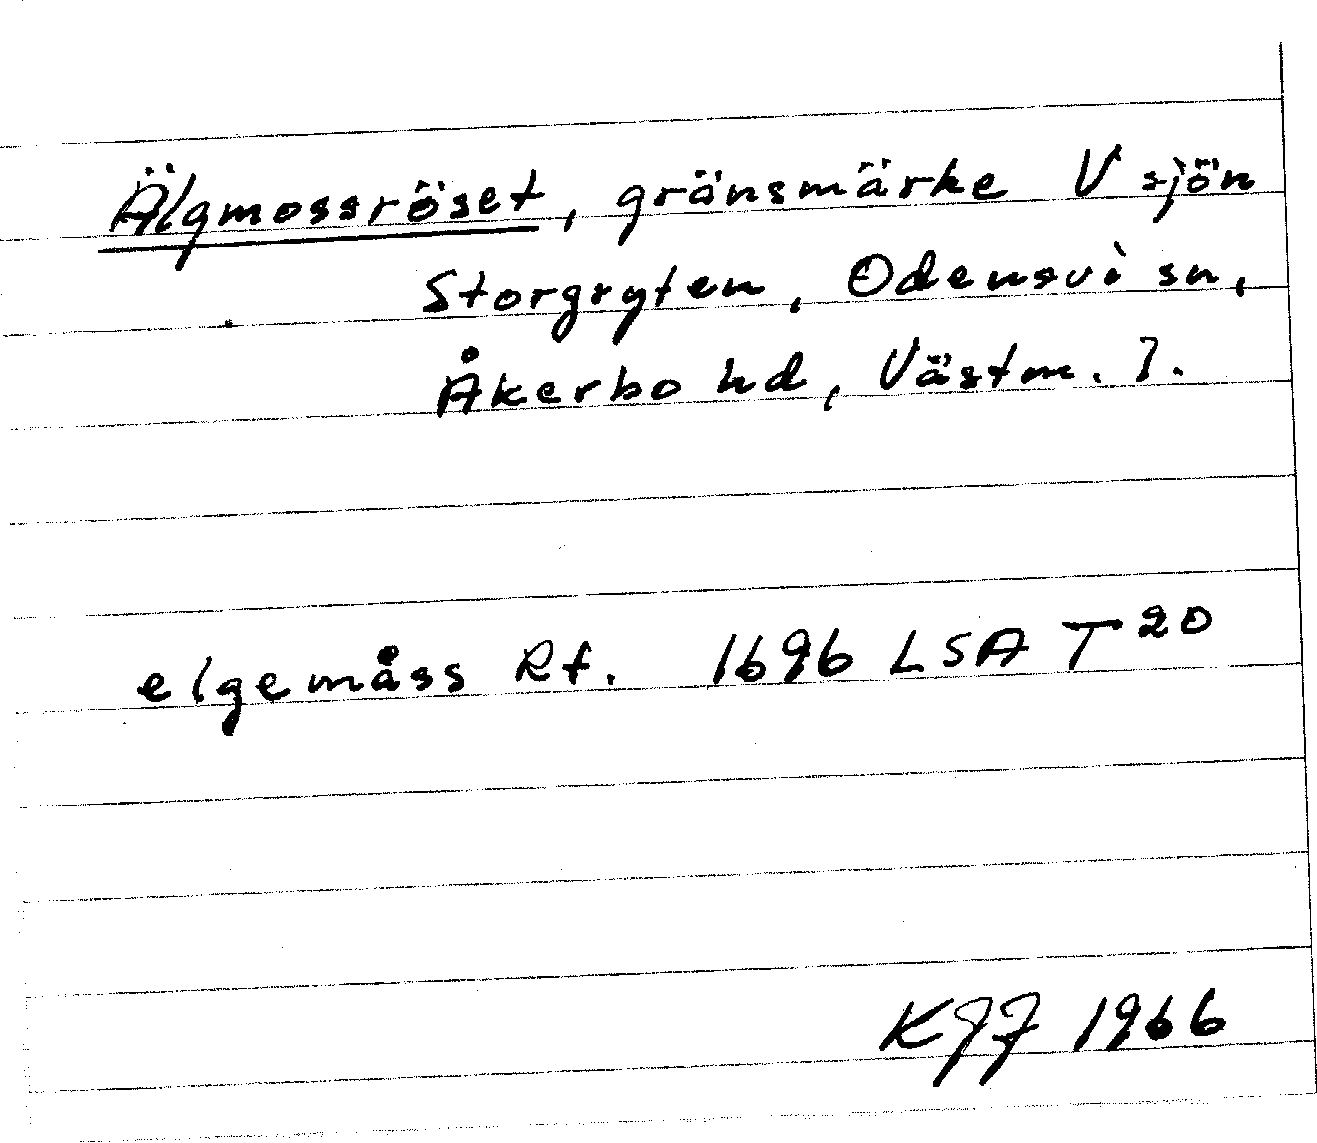 Älgmossröset, gränsmärke V sjön
Storgryten, Odensvi sn,
Åkerbo hd, Västm. l.
elgemåss Rf. 1696 LSA T 20
KJF 1966